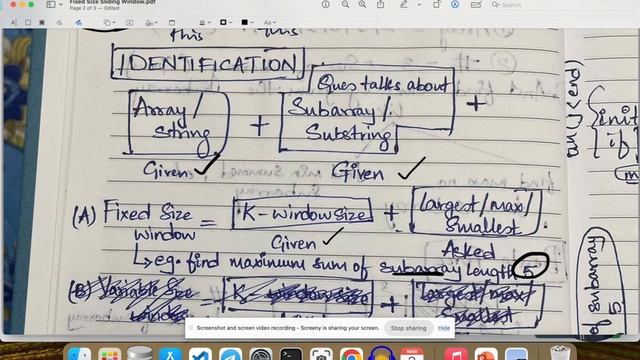 Fixed Size Sliding Window.pdf
Page 2 of 3 — Edited
Search
this this
IDENTIFICATION
Ques talks about
Array / String + Subarray / Substring +
Given ✓ Given ✓
(A) Fixed Size Window = K-window size + largest/max/ Smallest
Given ✓ Asked
↳ eg. find maximum sum of subarray length 5
(B) Variable Size Window = K-window size + largest/max/ Smallest
an (j<end)
{
init
if
of subarray
5
Screenshot and screen video recording – Screeny is sharing your screen.
Stop sharing
Hide